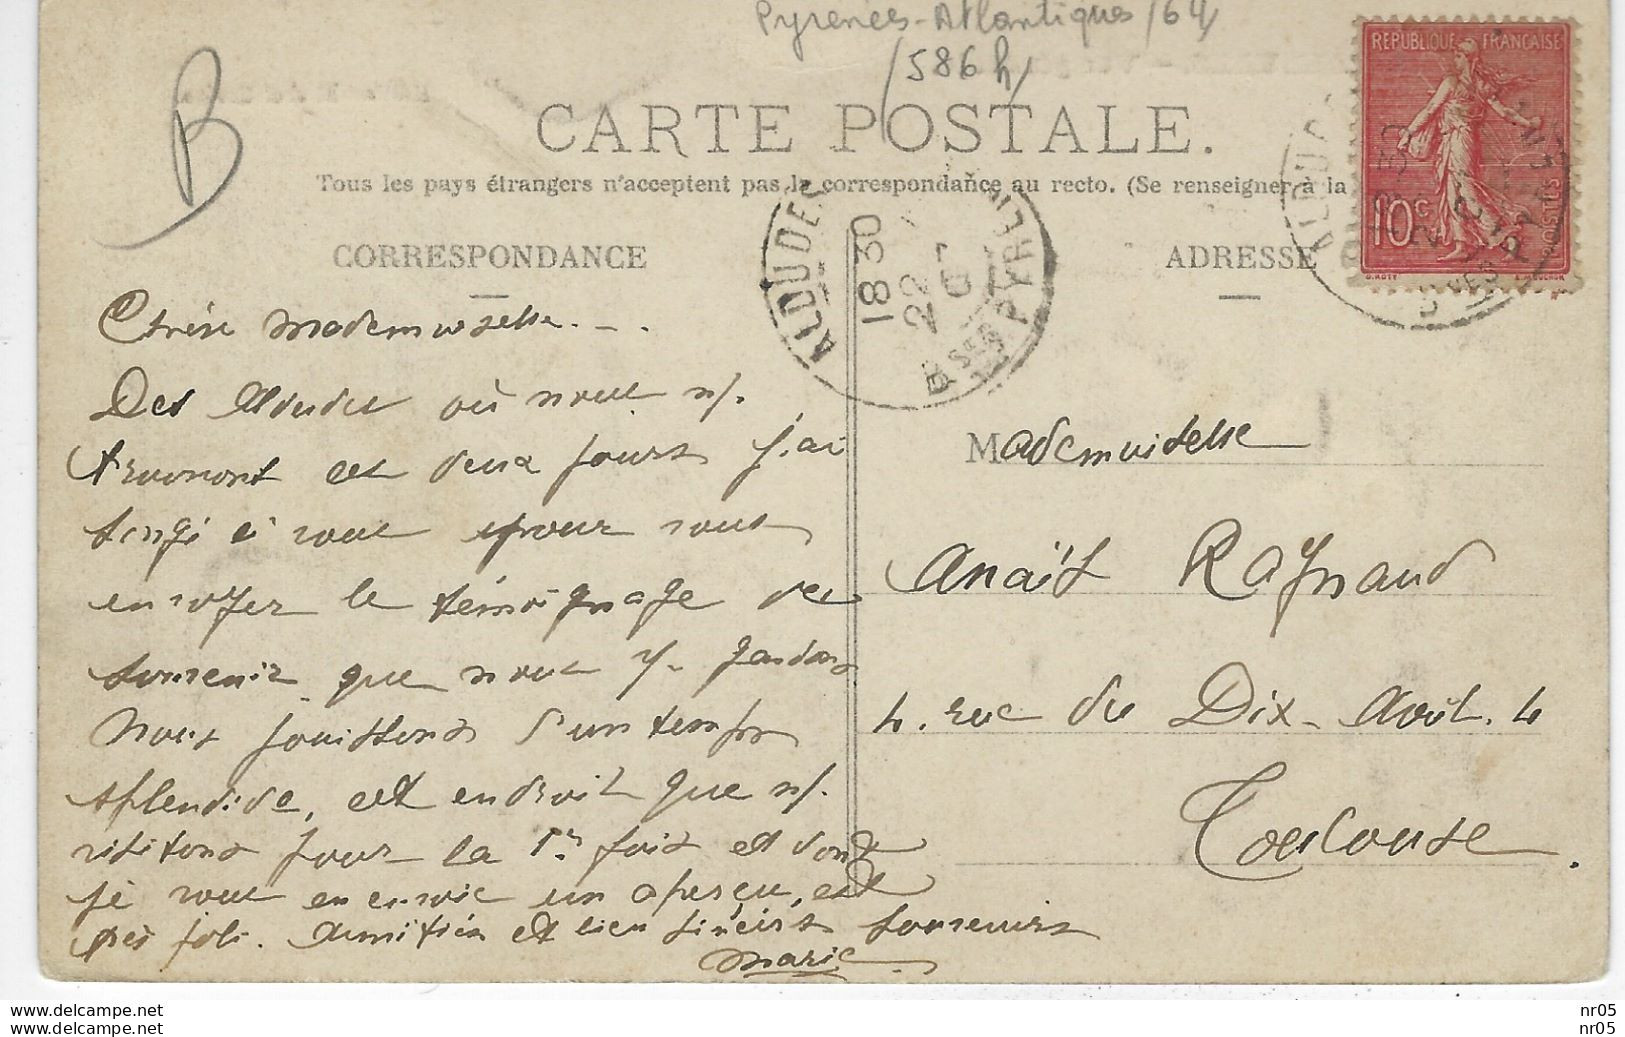 Pyrences-Atlantiques/64
/586 h/
B
REPUBLIQUE FRANCAISE
10c
O. ROTY
CARTE POSTALE.
Tous les pays étrangers n'acceptent pas la correspondance au recto. (Se renseigner à la
CORRESPONDANCE
ADRESSE
ALDUDES
18 30
22
Bses PYRENEES
Chère Mademoiselle...
Des Aldudes où nous n/.
trouvons et deux jours j'ai
songé à vous pour vous
envoyer le témoignage de
souvenir que nous y gardons
Nous jouissons d'un temps
splendide, cet endroit que n/.
visitons pour la 1re fois et dont
je vous en envoie un aperçu, est
très joli. Amitiés et bien sincères souvenirs
Marie
Mademoiselle
Anaïs Raynaud
4. rue du Dix-Avril. 4
Toulouse.
nr05
nr05